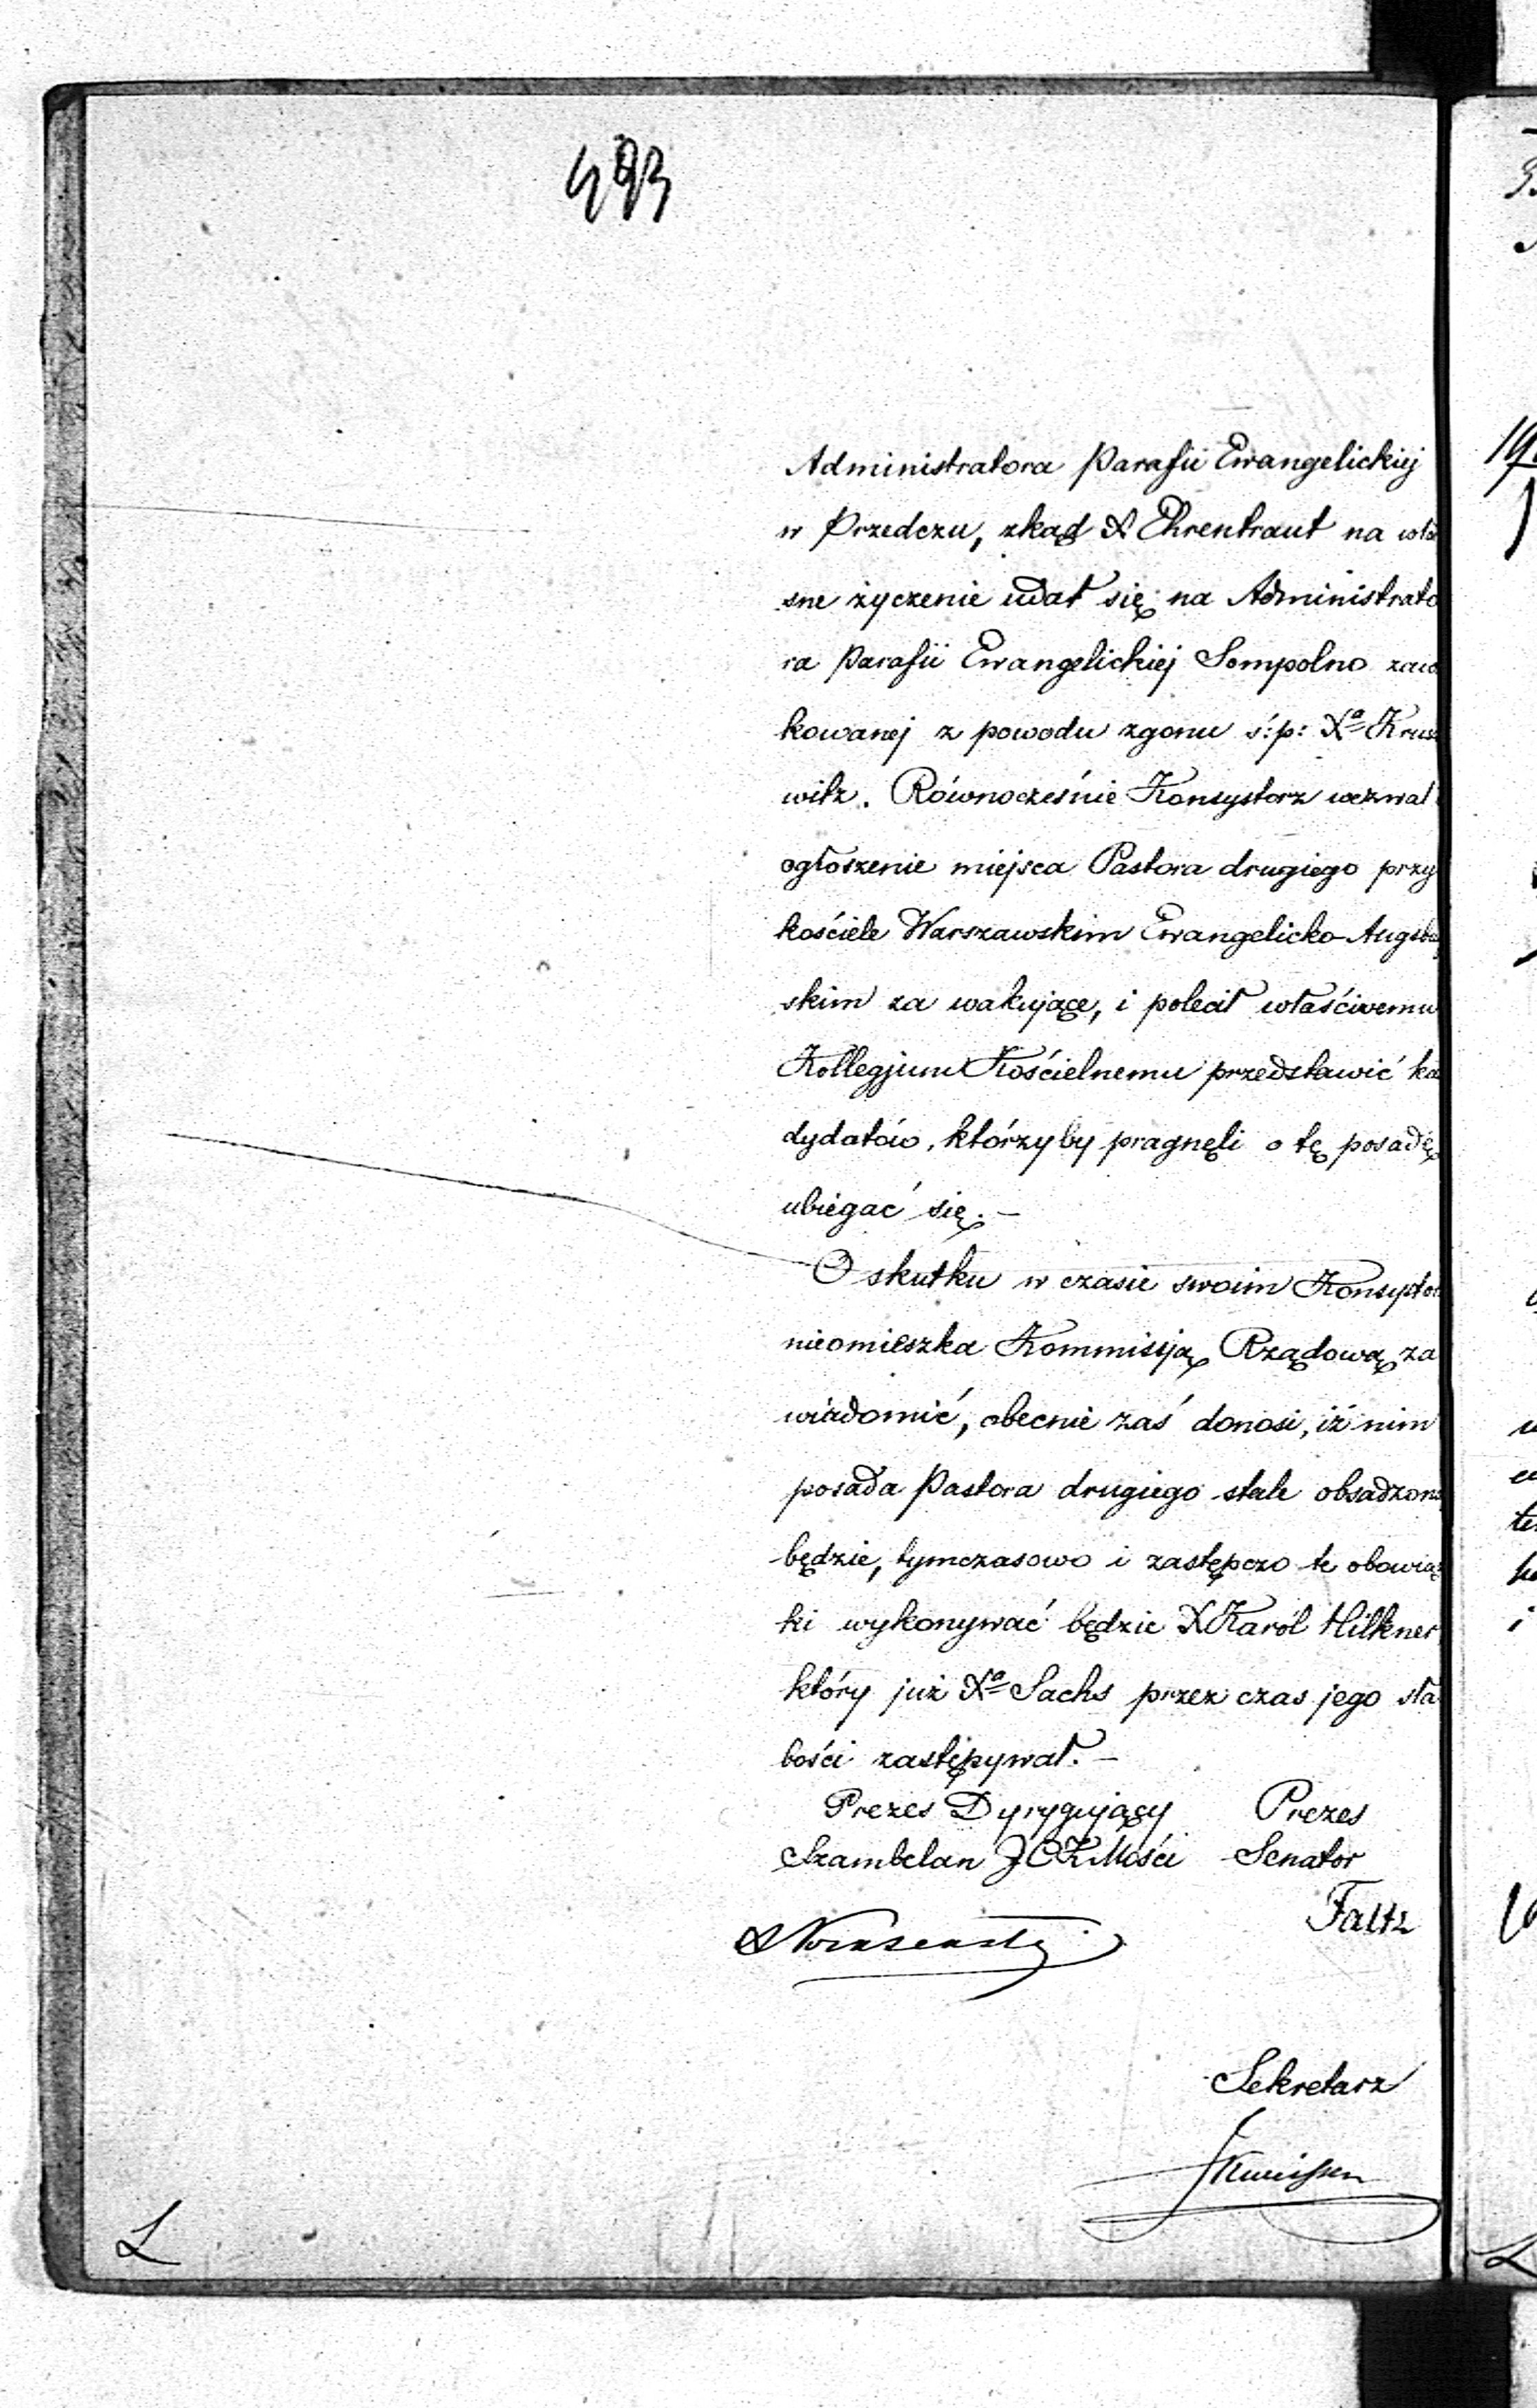 493
Administratora Parafii Ewangelickiej
w Przedczu, zkąd X Ehrentraut na wła
sne życzenie udał się na Administrato
ra Parafii Ewangelickiej Sompolno zawa
kowanej z powodu zgonu ś:p: Xa Krus
witz. Równocześnie Konsystorz wezwał
ogłoszenie miejsca Pastora drugiego przy
kościele Warszawskim Ewangelicko-Augsbu
skim za wakujące, i polecił właściwemu
Kollegjum Kościelnemu przedstawić ka
dydatów, którzyby pragnęli o tę posadę
ubiegać się. –
O skutku w czasie swoim Konsystor
nieomieszka Kommissją Rządową za
wiadomić, obecnie zaś donosi, iż nim
posada Pastora drugiego stale obsadzoną
będzie, tymczasowo i zastępczo te obowią
ki wykonywać będzie X Karól Hilkner
który już Xa Sachs przez czas jego sła
bości zastępywał. –
Prezes Dyrygujący Prezes
Szambelan JCKMości Senator
Faltz
Sekretarz
L